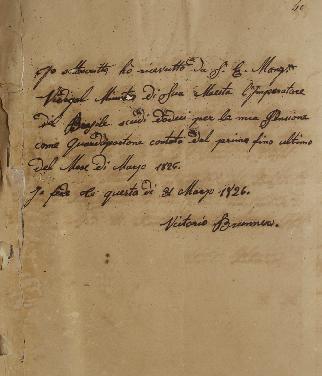 40
Io sottoscritto ho ricevutto da S. E. Mong.r
Vidigal Ministro di Sua Maesta l'Imperatore
del Brasile scudi dodeci per la mia Pensione
come Guardaportone contato dal primo fino ultimo
del Mese di Marzo 1826.
In fede di questa di 31 Marzo 1826.
Vittorio Brunner.